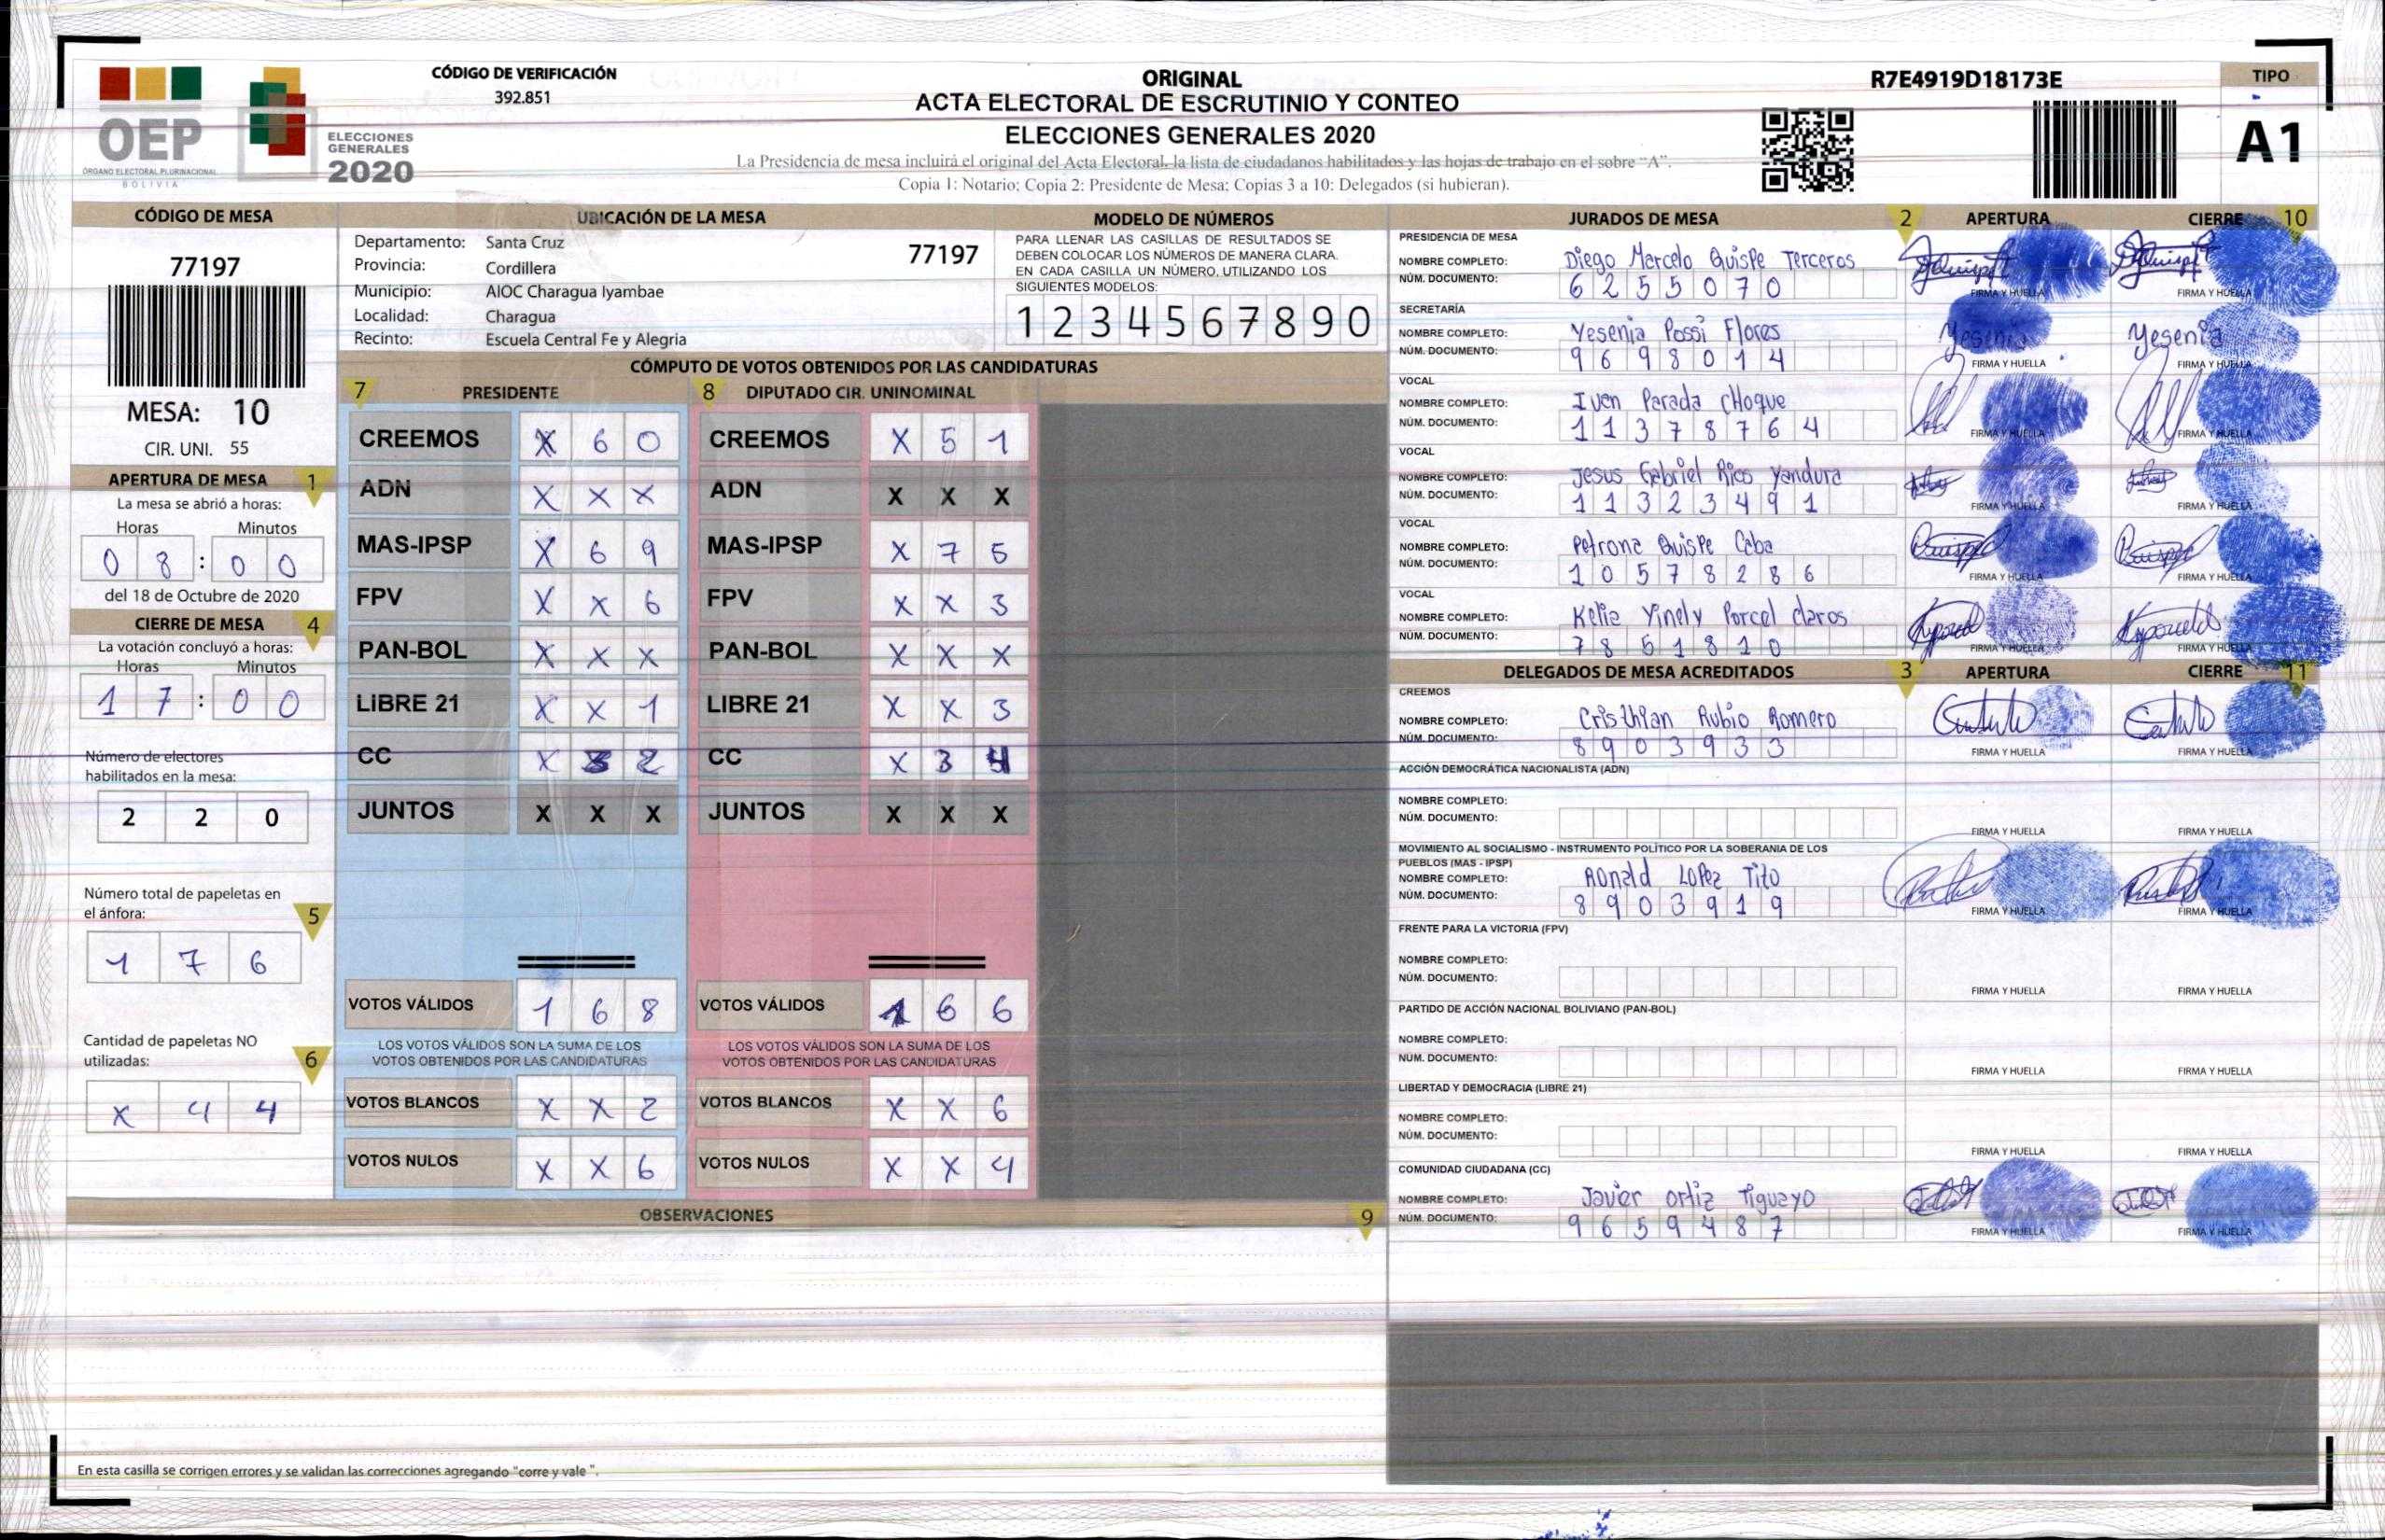 CÓDIGO DE VERIFICACIÓN
392.851
ORIGINAL
ACTA ELECTORAL DE ESCRUTINIO Y CONTEO
ELECCIONES GENERALES 2020
La Presidencia de mesa incluirá el original del Acta Electoral, la lista de ciudadanos habilitados y las hojas de trabajo en el sobre "A".
Copia 1: Notario; Copia 2: Presidente de Mesa; Copias 3 a 10: Delegados (si hubieran).
R7E4919D18173E
TIPO
A1
OEP
ÓRGANO ELECTORAL PLURINACIONAL
BOLIVIA
ELECCIONES
GENERALES
2020
CÓDIGO DE MESA
77197
MESA: 10
CIR. UNI. 55
APERTURA DE MESA 1
La mesa se abrió a horas:
Horas Minutos
0 8 : 0 0
del 18 de Octubre de 2020
CIERRE DE MESA 4
La votación concluyó a horas:
Horas Minutos
1 7 : 0 0
Número de electores
habilitados en la mesa:
2 2 0
Número total de papeletas en
el ánfora: 5
1 7 6
Cantidad de papeletas NO
utilizadas: 6
X 4 4
UBICACIÓN DE LA MESA
Departamento: Santa Cruz 77197
Provincia: Cordillera
Municipio: AIOC Charagua Iyambae
Localidad: Charagua
Recinto: Escuela Central Fe y Alegria
MODELO DE NÚMEROS
PARA LLENAR LAS CASILLAS DE RESULTADOS SE
DEBEN COLOCAR LOS NÚMEROS DE MANERA CLARA.
EN CADA CASILLA UN NÚMERO, UTILIZANDO LOS
SIGUIENTES MODELOS:
1 2 3 4 5 6 7 8 9 0
CÓMPUTO DE VOTOS OBTENIDOS POR LAS CANDIDATURAS
7 PRESIDENTE 8 DIPUTADO CIR. UNINOMINAL
CREEMOS X 6 0 CREEMOS X 5 1
ADN X X X ADN X X X
MAS-IPSP X 6 9 MAS-IPSP X 7 5
FPV X X 6 FPV X X 3
PAN-BOL X X X PAN-BOL X X X
LIBRE 21 X X 1 LIBRE 21 X X 3
CC X 3 2 CC X 3 4
JUNTOS X X X JUNTOS X X X
VOTOS VÁLIDOS 1 6 8 VOTOS VÁLIDOS 1 6 6
LOS VOTOS VÁLIDOS SON LA SUMA DE LOS
VOTOS OBTENIDOS POR LAS CANDIDATURAS
LOS VOTOS VÁLIDOS SON LA SUMA DE LOS
VOTOS OBTENIDOS POR LAS CANDIDATURAS
VOTOS BLANCOS X X 2 VOTOS BLANCOS X X 6
VOTOS NULOS X X 6 VOTOS NULOS X X 4
OBSERVACIONES 9
En esta casilla se corrigen errores y se validan las correcciones agregando "corre y vale ".
JURADOS DE MESA 2 APERTURA CIERRE 10
PRESIDENCIA DE MESA
NOMBRE COMPLETO: Diego Marcelo Quispe Terceros
NÚM. DOCUMENTO: 6 2 5 5 0 7 0
FIRMA Y HUELLA FIRMA Y HUELLA
SECRETARÍA
NOMBRE COMPLETO: Yesenia Possi Flores Yesenia Yesenia
NÚM. DOCUMENTO: 9 6 9 8 0 1 4
FIRMA Y HUELLA FIRMA Y HUELLA
VOCAL
NOMBRE COMPLETO: Ivan Parada CHoque
NÚM. DOCUMENTO: 1 1 3 7 8 7 6 4
FIRMA Y HUELLA FIRMA Y HUELLA
VOCAL
NOMBRE COMPLETO: Jesus Gabriel Rios Yandura
NÚM. DOCUMENTO: 1 1 3 2 3 4 9 1
FIRMA Y HUELLA FIRMA Y HUELLA
VOCAL
NOMBRE COMPLETO: Petrona Quispe Caba
NÚM. DOCUMENTO: 1 0 5 7 8 2 8 6
FIRMA Y HUELLA FIRMA Y HUELLA
VOCAL
NOMBRE COMPLETO: Kelia Yinely Porcel claros
NÚM. DOCUMENTO: 7 8 5 1 8 1 0
FIRMA Y HUELLA FIRMA Y HUELLA
DELEGADOS DE MESA ACREDITADOS 3 APERTURA CIERRE 11
CREEMOS
NOMBRE COMPLETO: Cristhian Rubio Romero
NÚM. DOCUMENTO: 8 9 0 3 9 3 3
FIRMA Y HUELLA FIRMA Y HUELLA
ACCIÓN DEMOCRÁTICA NACIONALISTA (ADN)
NOMBRE COMPLETO:
NÚM. DOCUMENTO:
FIRMA Y HUELLA FIRMA Y HUELLA
MOVIMIENTO AL SOCIALISMO - INSTRUMENTO POLÍTICO POR LA SOBERANIA DE LOS
PUEBLOS (MAS - IPSP)
NOMBRE COMPLETO: Ronald LOPez Tito
NÚM. DOCUMENTO: 8 9 0 3 9 1 9
FIRMA Y HUELLA FIRMA Y HUELLA
FRENTE PARA LA VICTORIA (FPV)
NOMBRE COMPLETO:
NÚM. DOCUMENTO:
FIRMA Y HUELLA FIRMA Y HUELLA
PARTIDO DE ACCIÓN NACIONAL BOLIVIANO (PAN-BOL)
NOMBRE COMPLETO:
NÚM. DOCUMENTO:
FIRMA Y HUELLA FIRMA Y HUELLA
LIBERTAD Y DEMOCRACIA (LIBRE 21)
NOMBRE COMPLETO:
NÚM. DOCUMENTO:
FIRMA Y HUELLA FIRMA Y HUELLA
COMUNIDAD CIUDADANA (CC)
NOMBRE COMPLETO: Javier ortiz Tiguayo
NÚM. DOCUMENTO: 9 6 5 9 4 8 7
FIRMA Y HUELLA FIRMA Y HUELLA